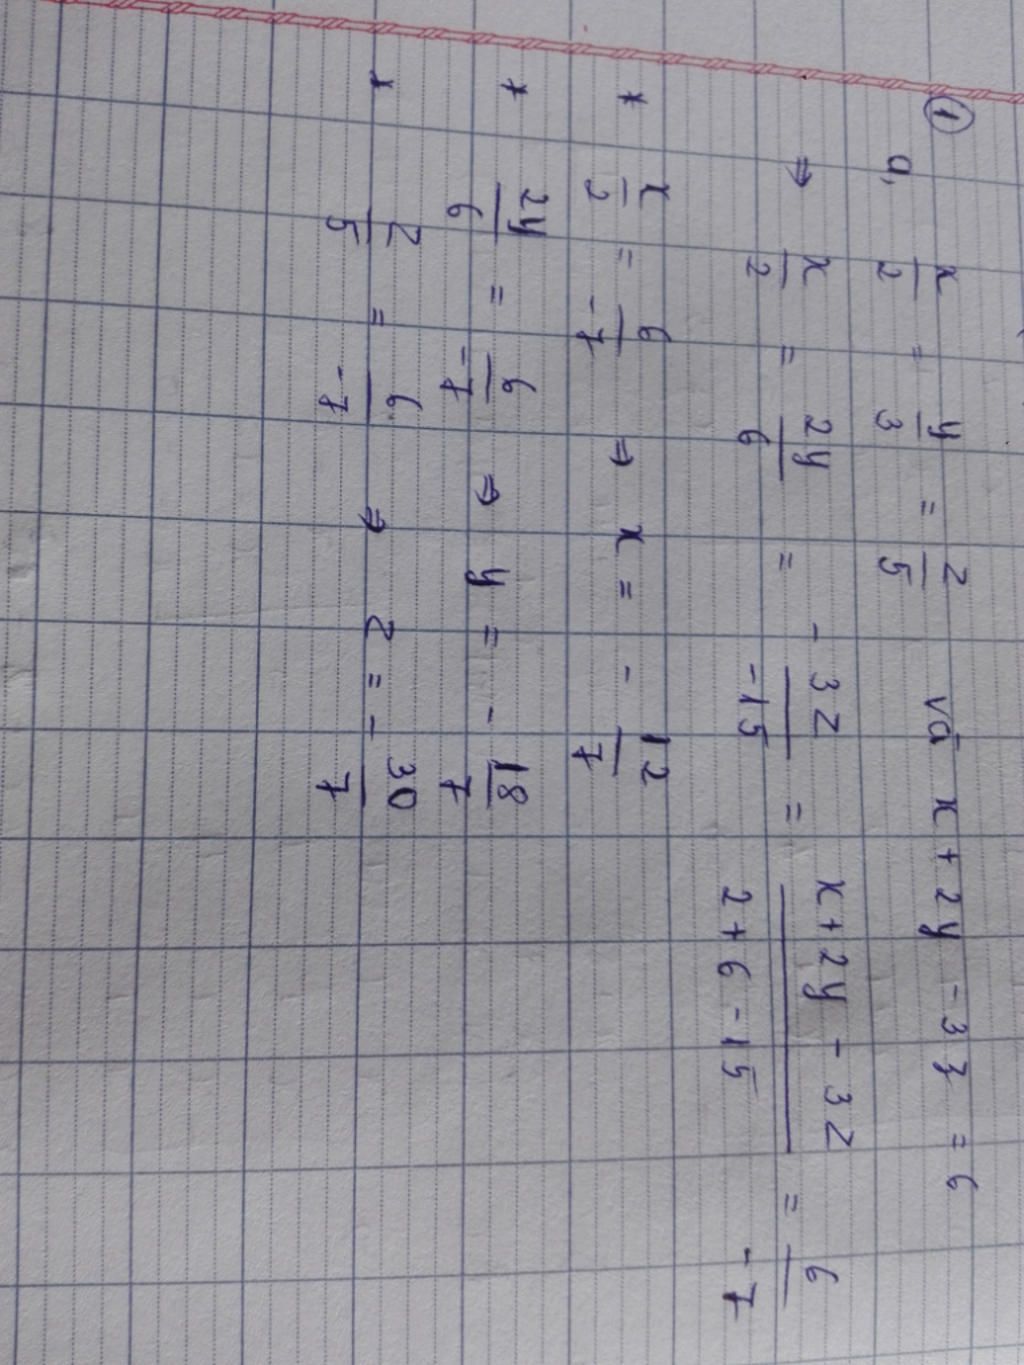 ①
a, x/2 = y/3 = z/5 và x + 2y - 3z = 6
⇒ x/2 = 2y/6 = -3z/-15 = (x + 2y - 3z)/(2 + 6 - 15) = 6/-7
* x/2 = 6/-7 ⇒ x = -12/7
* 2y/6 = 6/-7 ⇒ y = -18/7
* z/5 = 6/-7 ⇒ z = -30/7